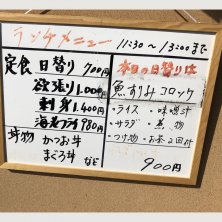 ランチメニュー 11:30～13:00まで
定食 日替り 700円
欲張り 1.000円
刺身 1.400円
海老フライ 980円
丼物 かつお丼
まぐろ丼 など
本日の日替りは
魚すりみコロッケ
・ライス ・味噌汁
・サラダ ・煮物
・つけ物 ・お茶2回汁
900円